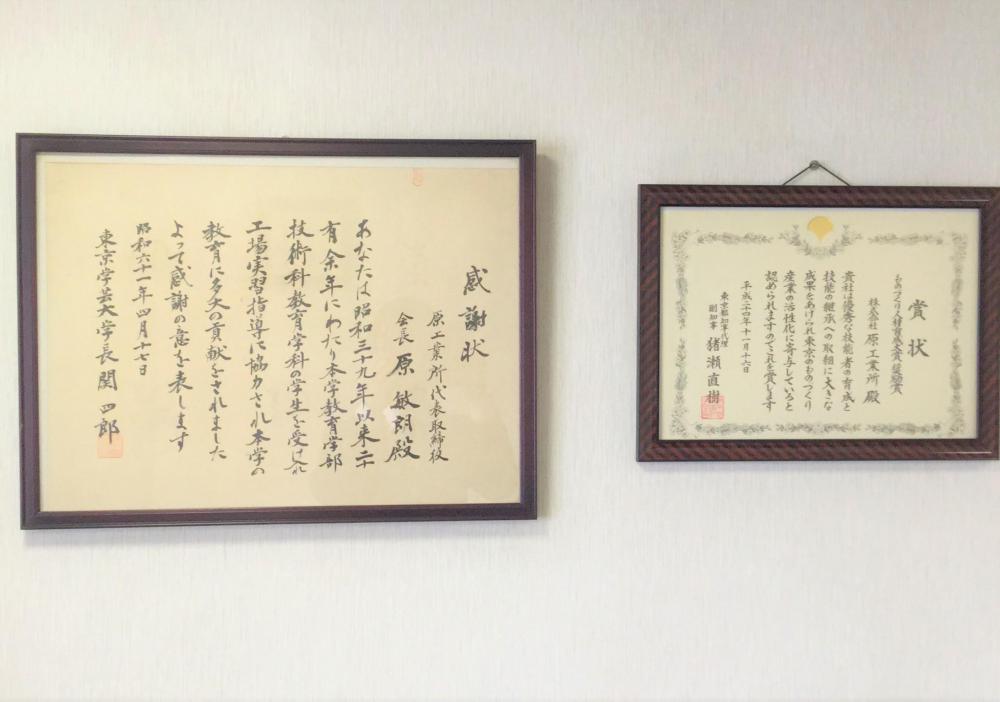 感謝状
原工業所代表取締役
会長 原 敏朗殿
あなたは昭和三十九年以来二十
有余年にわたり本学教育学部
技術科教育学科の学生を受け入れ
工場実習指導に協力され本学の
教育に多大の貢献をされました
よって感謝の意を表します
昭和六十一年四月十七日
東京学芸大学長 関 四郎
賞状
ものづくり人材育成大賞 奨励賞
株式会社 原工業所 殿
貴社は優秀な技能者の育成と
技能の継承への取組に大きな
成果をあげられ東京のものづくり
産業の活性化に寄与していると
認められますのでこれを賞します
平成二十四年十一月十六日
東京都知事職務代理者
副知事 猪瀬直樹